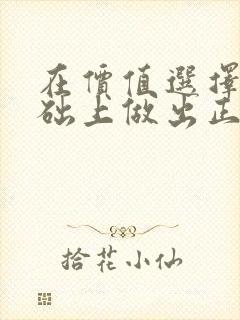 在價值選擇
础上做出正
拾花小仙